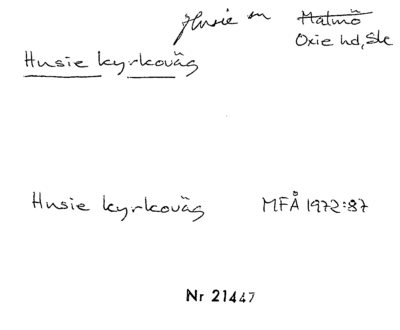 Husie sn Malmö
Oxie hd, Sk
Husie kyrkoväg
Husie kyrkoväg MFÅ 1972:87
Nr 21447